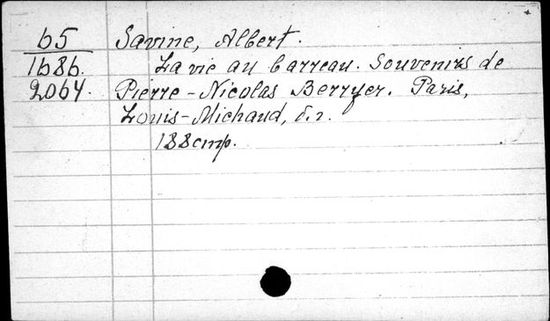 65 Savine, Albert.
1686. La vie au barreau. Souvenirs de
2064. Pierre-Nicolas Berryer. Paris,
Louis-Michaud, б.г.
188 стр.